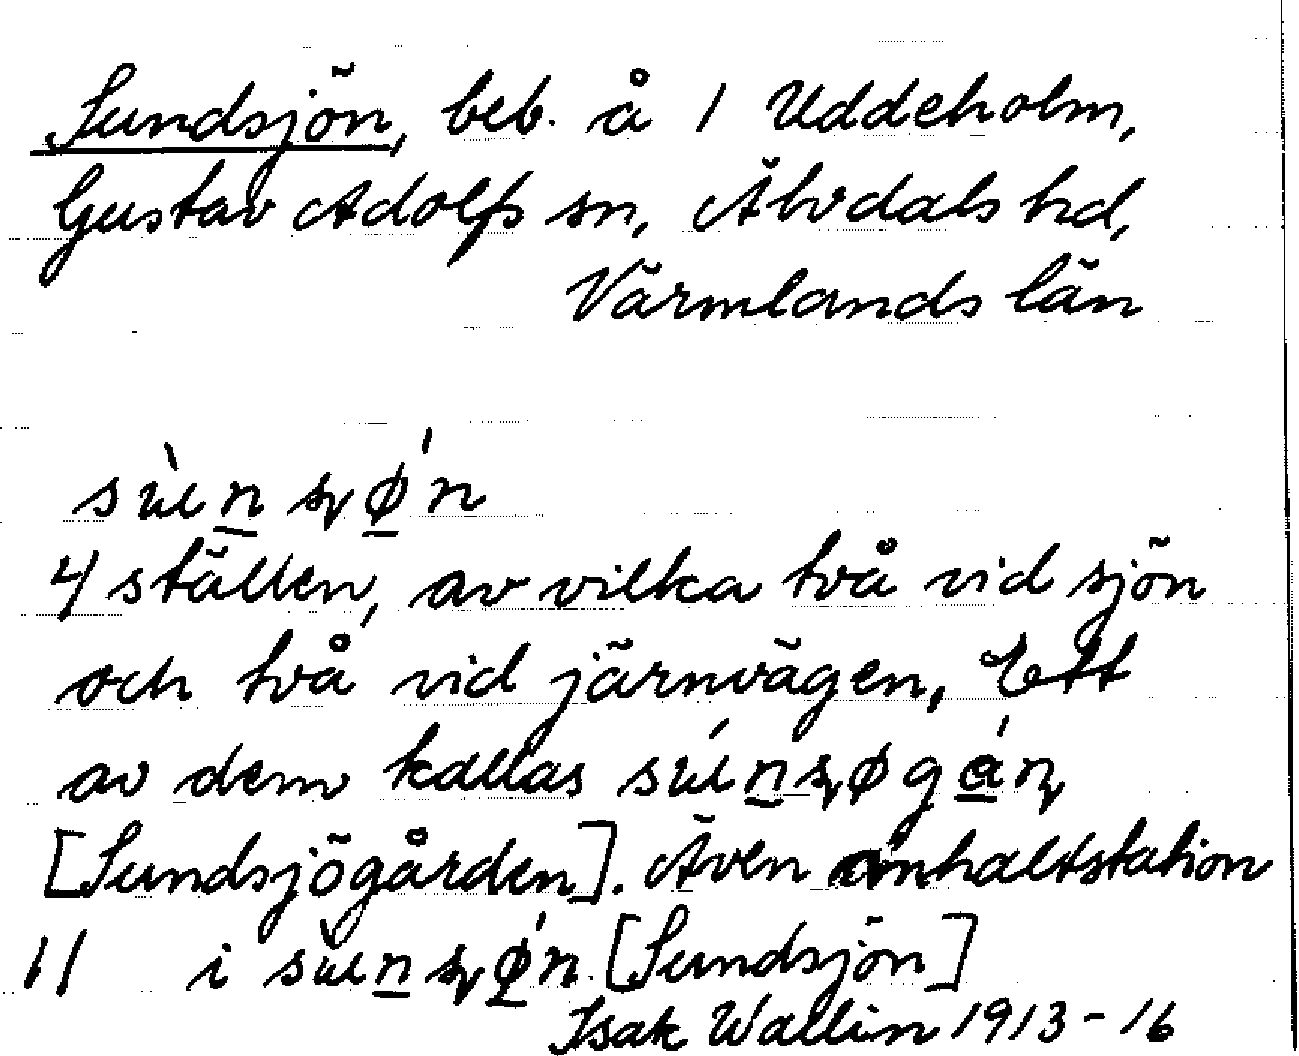 Sundsjön, beb. å 1 Uddeholm,
Gustav Adolfs sn, Älvdals hd,
Värmlands län
sùn̲ sɟǿ̲n
4 ställen, av vilka två vid sjön
och två vid järnvägen, Ett
av dem kallas
[Sundsjögården]. Även anhaltstation
11 i [Sundsjön]
Isak Wallin 1913-16